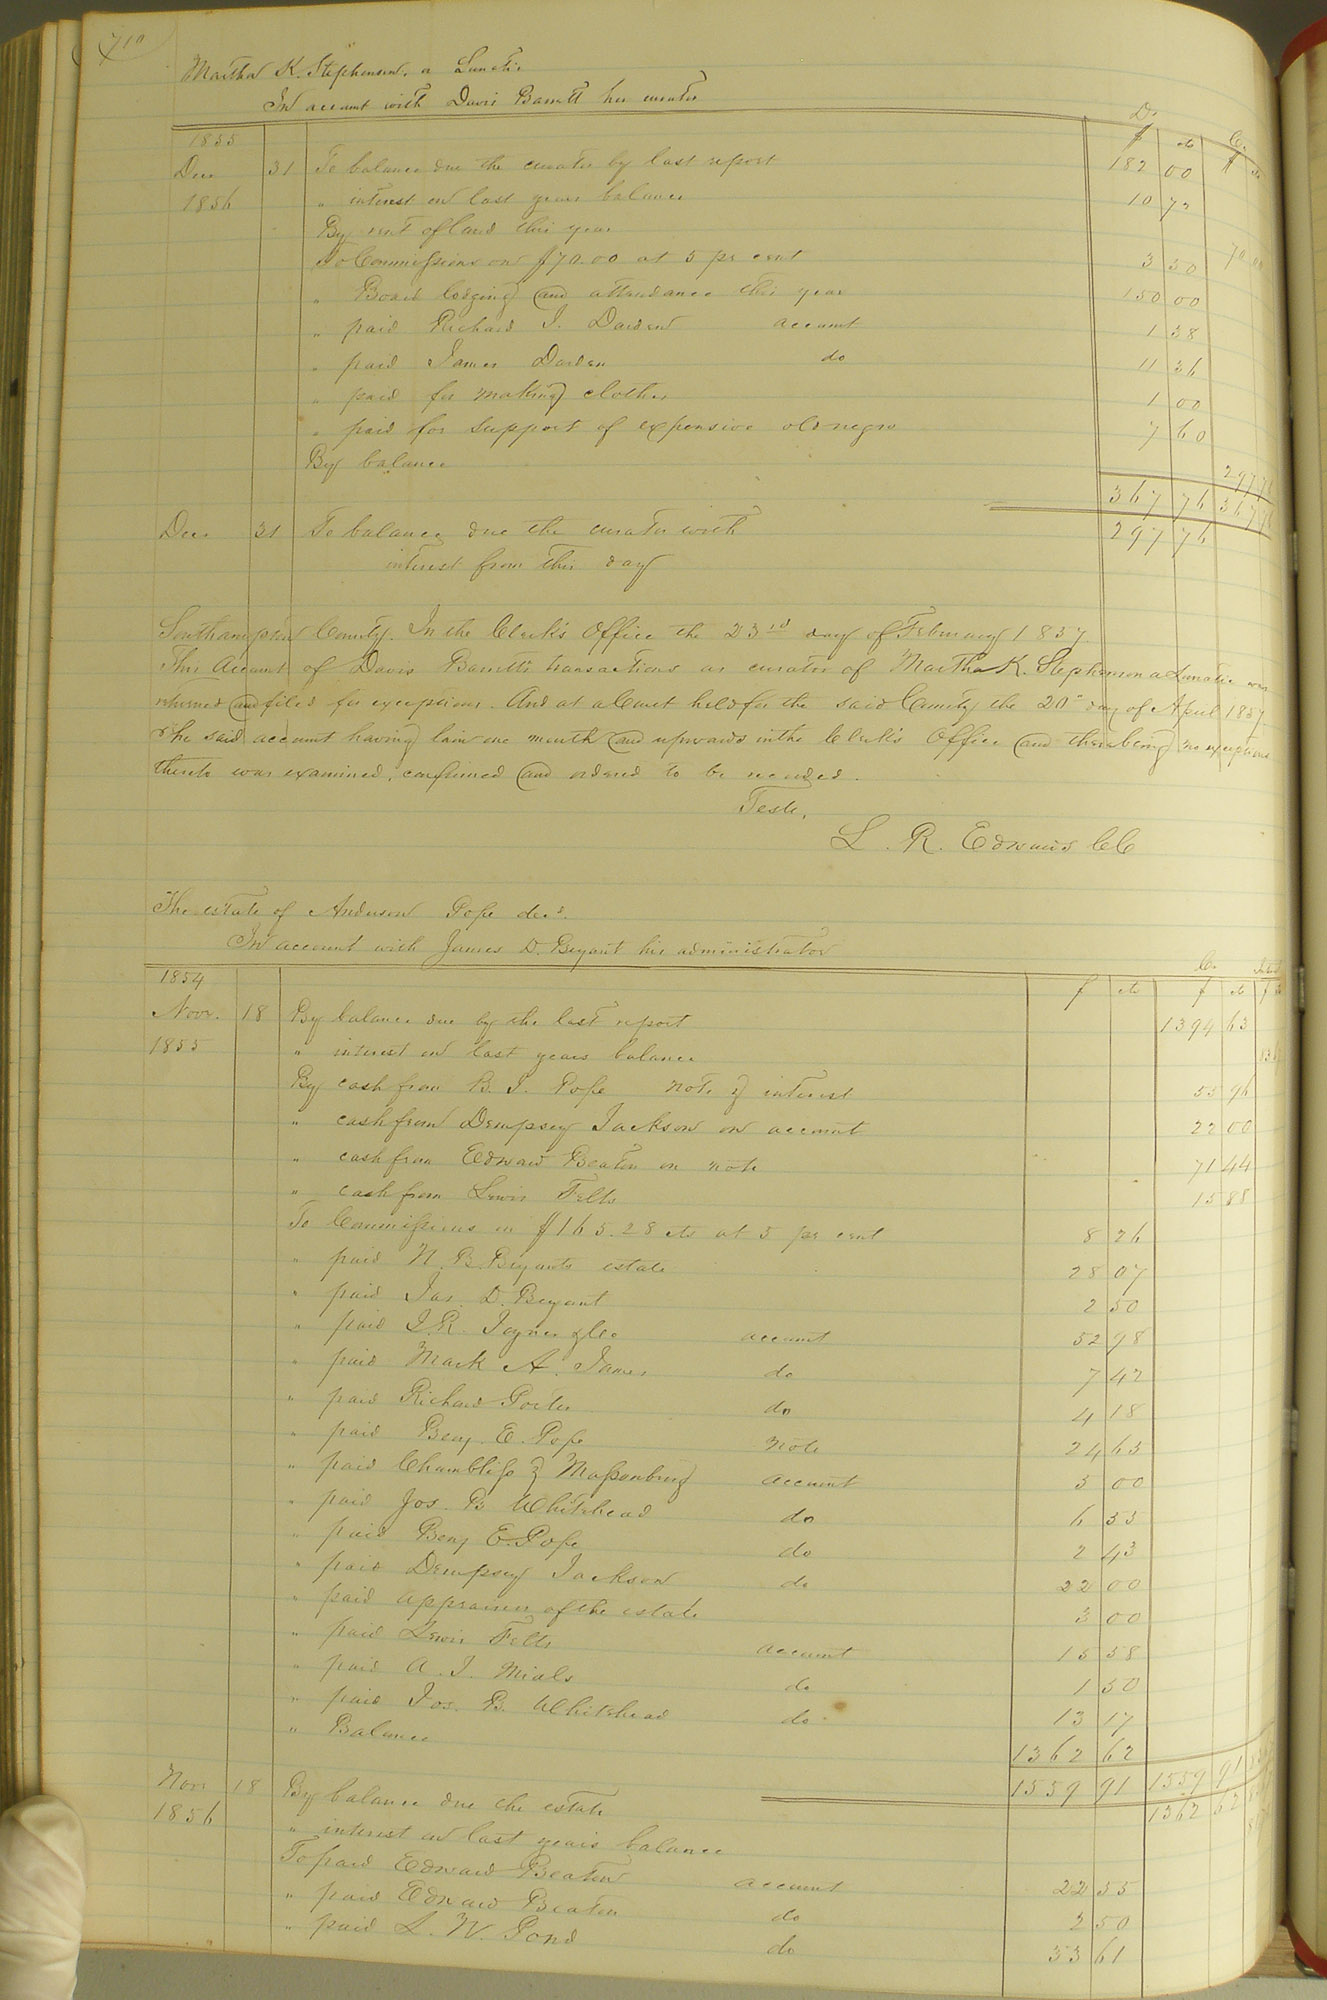 710
Martha K. Stephenson, a Lunatic
In account with Davis Barrett her curator
Dr. Cr.
1855 $ cts $
Dec 31 To balance due the curator by last report 182 00
1856 " interest on last years balance 10 92
By rent of land this year 70 00
To Commissions on $70.00 at 5 pr cent 3 50
" Board lodging and attendance this year 150 00
" paid Richard J. Darden account 1 38
" paid James Darden do 11 36
" paid for making clothes 1 00
" paid for support of expensive old negro 7 60
By balance 297 76
367 76 367 76
Dec 31 To balance due the curator with 297 76
interest from this day
Southampton County. In the Clerk's Office the 23rd day of February 1857.
This Account of Davis Barrett's transactions as curator of Martha K. Stephenson a Lunatic was
returned and filed for exceptions. And at a Court held for the said County the 20" day of April 1857.
The said account having lain one month and upwards in the Clerk's Office and there being no exceptions
thereto was examined, confirmed and ordered to be recorded.
Teste,
L. R. Edwards CC
The estate of Anderson Pope decd.
In account with James D. Bryant his administrator
Cr.
1854 $ cts $ cts $
Novr. 18 By balance due by the last report 1394 63
1855 " interest on last years balance
By cash from B. J. Pope note & interest 55 96
" cash from Dempsey Jackson on account 22 00
" cash from Edward Beaton on note 71 44
" cash from Lewis Felts 15 88
To Commissions on $165.28 cts at 5 pr cent 8 26
" paid N. B. Bryants estate 28 07
" paid Jas. D. Bryant 2 50
" paid J. R. Joyner & Co account 52 98
" paid Mark A. James do 7 42
" paid Richard Porter do 4 18
" paid Benj. E. Pope note 24 63
" paid Chambliss & Massenburg account 5 00
" paid Jos. B. Whitehead do 6 53
" paid Benj E. Pope do 2 43
" paid Dempsey Jackson do 22 00
" paid appraisers of the estate 3 00
" paid Lewis Felts account 15 58
" paid A. J. Mials do 1 50
" paid Jos. B. Whitehead do 13 17
" Balance 1362 62
1559 91 1559 91
Nov 18 By balance due the estate 1362 62
1856 " interest on last years balance
To paid Edward Beaton account 22 55
" paid Edward Beaton do 2 50
" paid L. W. Pond do 33 61